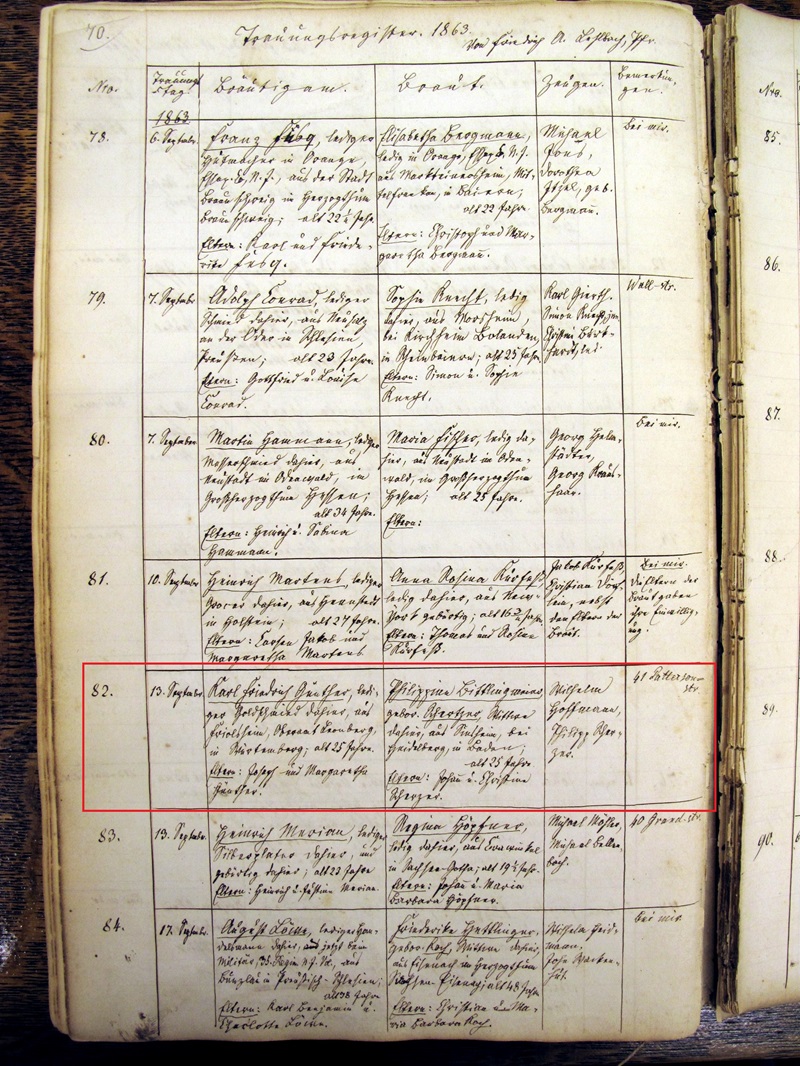 70.
Trauungsregister. 1863.
Von Friedrich A. Lehlbach, Pfr.
Nro.
Trauungs
tag.
Bräutigam.
Braut.
Zeugen.
Bemerkun-
gen.
Nro.
1863.
78.
6. Septembr.
Franz Füsg, lediger
Hutmacher in Orange,
Essex Co, N. J., aus der Stadt
Braunschweig im Herzogthum
Braunschweig; alt 22½ Jahr.
Eltern: Karl und Friede-
rike Füsg.
Elisabetha Bergmann,
ledig in Orange, Essex Co, N. J.
aus Markteinersheim, Mit-
telfranken, in Baiern;
alt 22 Jahre.
Eltern: Christoph und Mar-
garetha Bergmann.
Michael
Pons,
Dorothea
Itzel, geb.
Bergmann.
Bei mir.
79.
7. Septembr.
Adolph Conrad, lediger
Schmied dahier, aus Neusalz
an der Oder in Schlesien,
Preussen; alt 23 Jahre.
Eltern: Gottfried u. Louise
Conrad.
Sophie Knecht, ledig
dahier, aus Morsheim,
bei Kirchheim Bolanden,
in Rheinbaiern; alt 25 Jahr.
Eltern: Simon u. Sophie
Knecht.
Karl Gierth.
Simon Knecht, jun.
Wall-str.
80.
7. Septembr.
Martin Hammann, lediger
Messerschmied dahier, aus
Neustadt im Odenwald, im
Großherzogthum Hessen;
alt 34 Jahre.
Eltern: Heinrich u. Sabina
Hammann.
Maria Fischer, ledig da-
hier, aus Neustadt im Oden-
wald, im Großherzogthum
Hessen; alt 25 Jahre.
Eltern:
Georg Helm-
städter,
Georg Kraus-
haar.
Bei mir.
81.
10. Septembr.
Heinrich Martens, lediger
Grocer dahier, aus
in Holstein; alt 27 Jahre.
Eltern: Carsten Jakob und
Margaretha Martens
Anna Rosina Kürfeß,
ledig dahier, aus New-
York gebürtig; alt 16 Jahr.
Eltern: Thomas und Rosine
Kürfeß.
Jakob Kürfeß,
Christian
nebst
den Eltern der
Braut.
Bei mir.
Die Eltern der
Braut gaben
ihre Einwillig-
ung.
82.
13. Septembr.
Karl Friedrich Günther, ledi-
ger Goldschmied dahier, aus
Friolzheim, Oberamt Leonberg,
in Würtemberg; alt 25 Jahre.
Eltern: Joseph und Margaretha
Günther.
Philippine Bittlingmeier,
gebor. Scherzer, Wittwe
dahier, aus Sinsheim, bei
Heidelberg, in Baden;
alt 25 Jahre
Eltern: Johann u. Christine
Scherzer.
Wilhelm
Hoffmann,
Philipp Scher-
zer.
41 Patterson-
str.
83.
13. Septbr.
Heinrich Merian, lediger
Silberplater dahier, und
gebürtig dahier; alt 23 Jahre
Eltern: Heinrich u. Justine Merian.
Regina Höpfner,
ledig dahier, aus Crawinkel
in Sachsen-Gotha; alt 19½ Jahr.
Eltern: Johann u. Maria
Barbara Höpfner.
Michael Möhler,
Michael Bellen-
bach.
40 Grand-str.
84.
17. Septembr.
August Löwe, lediger Han-
delsmann dahier, aus jetzt beim
Militär, 35. Regim. N. J. Vol., aus
Bunzlau in Preußisch-Schlesien;
alt 38 Jahre
Eltern: Karl Benjamin u.
Charlotte Löwe.
Friederike Hettlinger,
gebor. Koch, Wittwe dahier,
aus Eisenach im Herzogthum
Sachsen-Eisenach; alt 48 Jahr.
Eltern: Christian und Ma-
ria Barbara Koch.
Wilhelm Heid-
mann.
John Wacken-
hut.
Bei mir
85.
86.
87.
88.
89.
90.